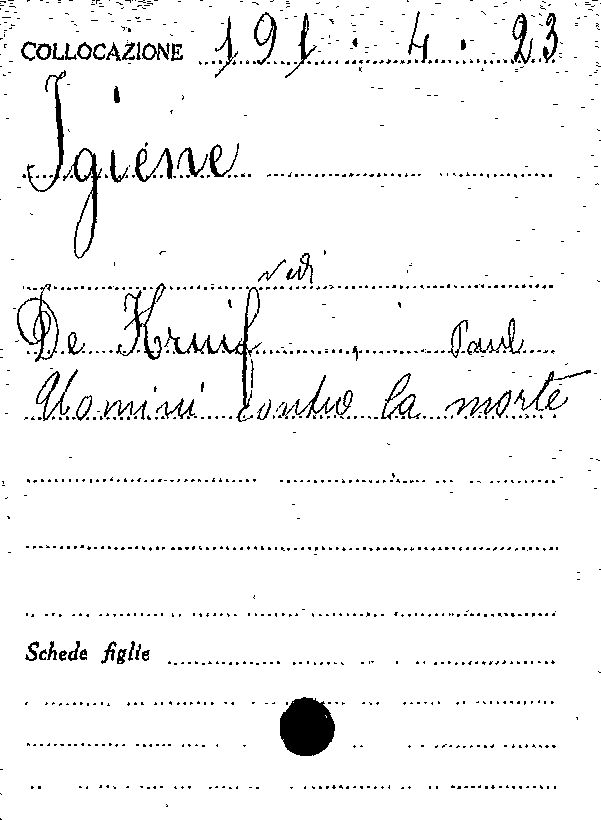 COLLOCAZIONE 191.4.23
Igiene
vedi
De Kruif, Paul
Uomini contro la morte
Schede figlie